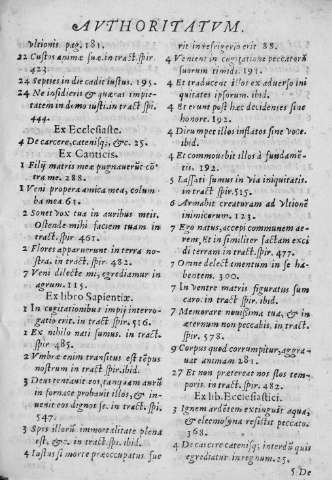 AVTHORITATVM.
vltionis. pag. 181.
22 Custos animæ suæ. in tract. spir.
423.
24 Septies in die cadit iustus. 195.
24 Ne insidieris & quæras impie-
tatem in demo iusti. in tract. spi.
444.
Ex Ecclesiaste.
4 De carcere, catenisq;, &c. 25.
Ex Canticis.
1 Filij matris meæ pugnauerũt cõ-
tra me. 288.
1 Veni propera amica mea, colum
ba mea 61.
2 Sonet vox tua in auribus meis.
Ostende mihi faciem tuam in
tract. spir. 461.
2 Flores apparuerunt in terra no-
stra. in tract. spir. 482.
7 Veni dilecte mi, egrediamur in
agrum. 115.
Ex libro Sapientiæ.
1 In cogitationibus impij interro-
gatio erit. in tract. spir. 516.
1 Ex nihilo nati sumus. in tract.
spir 485.
2 Vmbræ enim transitus est tẽpus
nostrum in tract. spir. ibid.
3 Deus tentauit eos, tanquam aurũ
in fornace probauit illos, & in-
uenit eos dignos se. in tract. spi.
547.
3 Spes illorũ immortalitate plena
est, &c. in tract. spi. ibid.
4 Iustus si morte præoccupatus fue
rit in refrigerio erit 88.
4 Venient in cogitatione peccatorũ
suorum timidi. 191.
4 Et traducent illos ex aduerso ini
quitates ipsorum. ibid.
4 Et erunt post hæc decidentes sine
honore. 192.
4 Dirumpet illos inflatos sine voce.
ibid.
4 Et commouebit illos à fundamẽ-
tis. 192.
5 Lassati sumus in via iniquitatis.
in tract spir. 525.
6 Armabit creaturam ad vltionẽ
inimicorum. 123.
7 Ego natus, accepi communem ae-
rem, Et in similiter factam exci
di terram in tract. spir. 477.
7 Omne delectamentum in se ha-
bentem. 300.
7 In ventre matris figuratus sum
caro. in tract spir. ibid.
7 Memorare nouissima tua, & in
æternum non peccabis. in tract.
spir. 578.
9 Corpus quod corrumpitur, aggra-
uat animam 281.
27 Et non prætereat nos flos tem-
poris. in tract. spir. 482.
Ex lib. Ecclesiastici.
3 Ignem ardẽtem extinguit aqua,
& eleemosyna resistit peccato.
368.
4 De carcere catenisq; interdũ quis
egrediatur in regnum. 25.
5 De